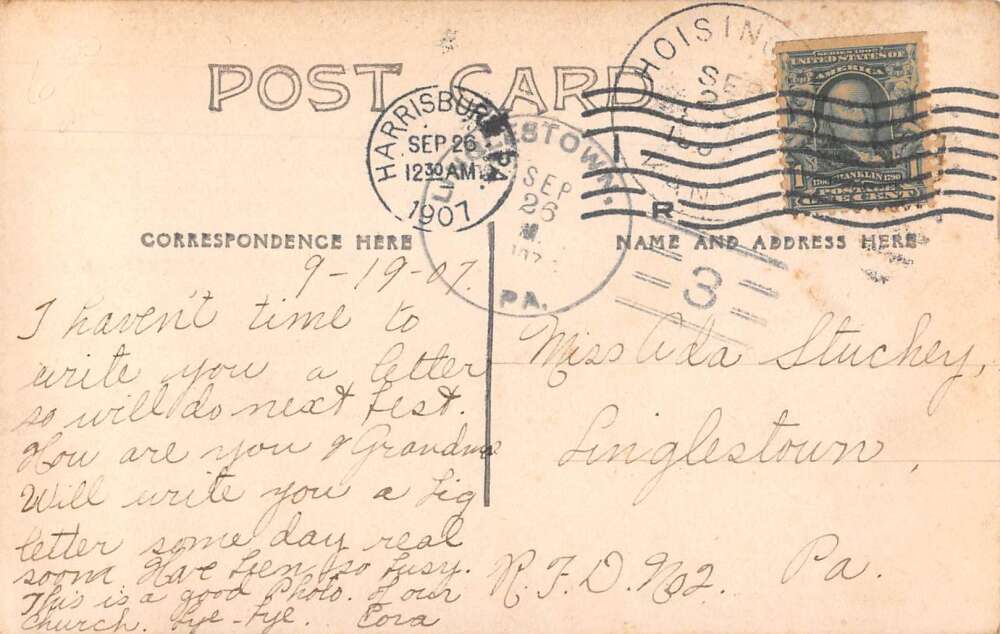 POST CARD
HARRISBURG, PA.
SEP 26
12 30 AM
1907
LINGLESTOWN,
SEP
26
M.
PA.
HOISING
SEP
R
3
SERIES 1902
UNITED STATES OF
AMERICA
1706 FRANKLIN 1790
POSTAGE
1 ONE CENT
CORRESPONDENCE HERE
NAME AND ADDRESS HERE
9-19-07.
I haven't time to
write you a letter
so will do next best.
How are you & Grandma
Will write you a big
letter some day real
soon. Have been so busy.
This is a good Photo. of our
church. Bye-bye. Cora
Miss Ada Stuchey,
Linglestown,
R.F.D. No2. Pa.